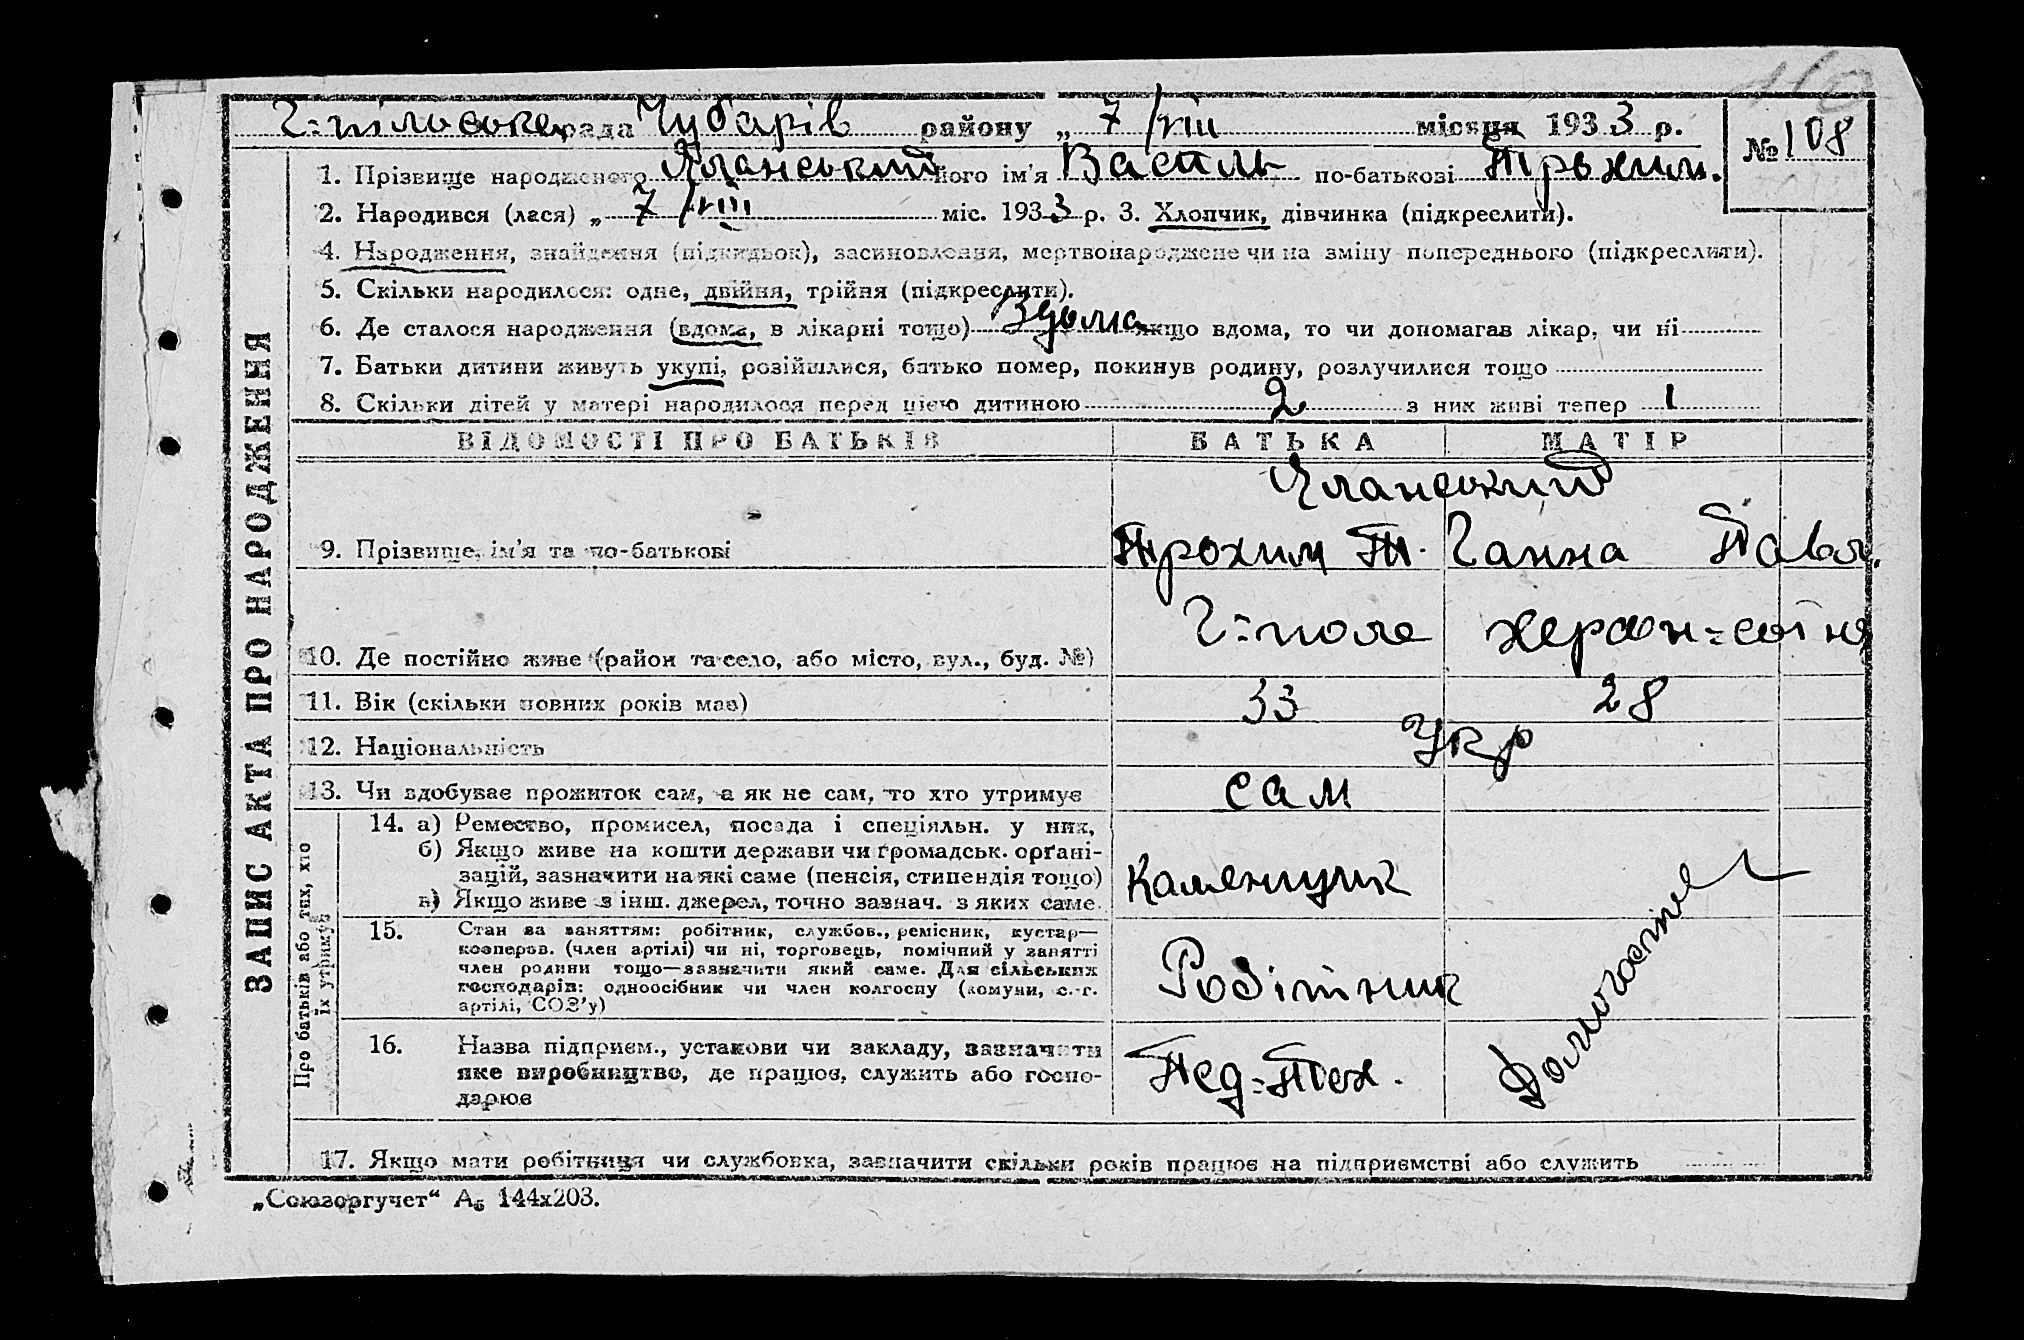 Г=пільська рада Чубарів району „ 7 /VIII місяця 1933 р.
№ 108
1. Прізвище народженого Яланський його ім'я Василь по-батькові Трохим.
2. Народився (лася) „ 7 /VIII міс. 1933 р. 3. Хлопчик, дівчинка (підкреслити).
4. Народження, знайдення (підкидьок), засиновлення, мертвонароджене чи на зміну попереднього (підкреслити).
5. Скільки народилося: одне, двійня, трійня (підкреслити).
6. Де сталося народження (вдома, в лікарні тощо) Вдома якщо вдома, то чи допомагав лікар, чи ні
7. Батьки дитини живуть укупі, розійшлися, батько помер, покинув родину, розлучилися тощо
8. Скільки дітей у матері народилося перед цією дитиною 2 з них живі тепер 1
ЗАПИС АКТА ПРО НАРОДЖЕННЯ
ВІДОМОСТІ ПРО БАТЬКІВ БАТЬКА МАТІР
Яланський
9. Прізвище, ім'я та по-батькові Трохим Т. Ганна Павл.
10. Де постійно живе (район та село, або місто, вул., буд. №) Г=поле
11. Вік (скільки повних років має) 33 28
12. Національність Укр
13. Чи здобуває прожиток сам, а як не сам, то хто утримує сам
Про батьків або тих, хто
їх утримує
14. а) Ремество, промисел, посада і спеціяльн. у них,
б) Якщо живе на кошти держави чи громадськ. орґані-
зацій, зазначити на які саме (пенсія, стипендія тощо)
в) Якщо живе з інш. джерел, точно зазнач. з яких саме.
Каменщик
15. Стан за заняттям: робітник, службов., ремісник, кустар—
кооперов. (член артілі) чи ні, торговець, помічний у занятті
член родини тощо—зазначити який саме. Для сільських
господарів: одноосібник чи член колгоспу (комуни, с.-г.
артілі, СОЗ'у)
Робітник
16. Назва підприєм., установи чи закладу, зазначити
яке виробництво, де працює, служить або госпо-
дарює
Пед=Тех.
17. Якщо мати робітниця чи службовка, зазначити скільки років працює на підприємстві або служить
„Союзоргучет“ А₆ 144x203.